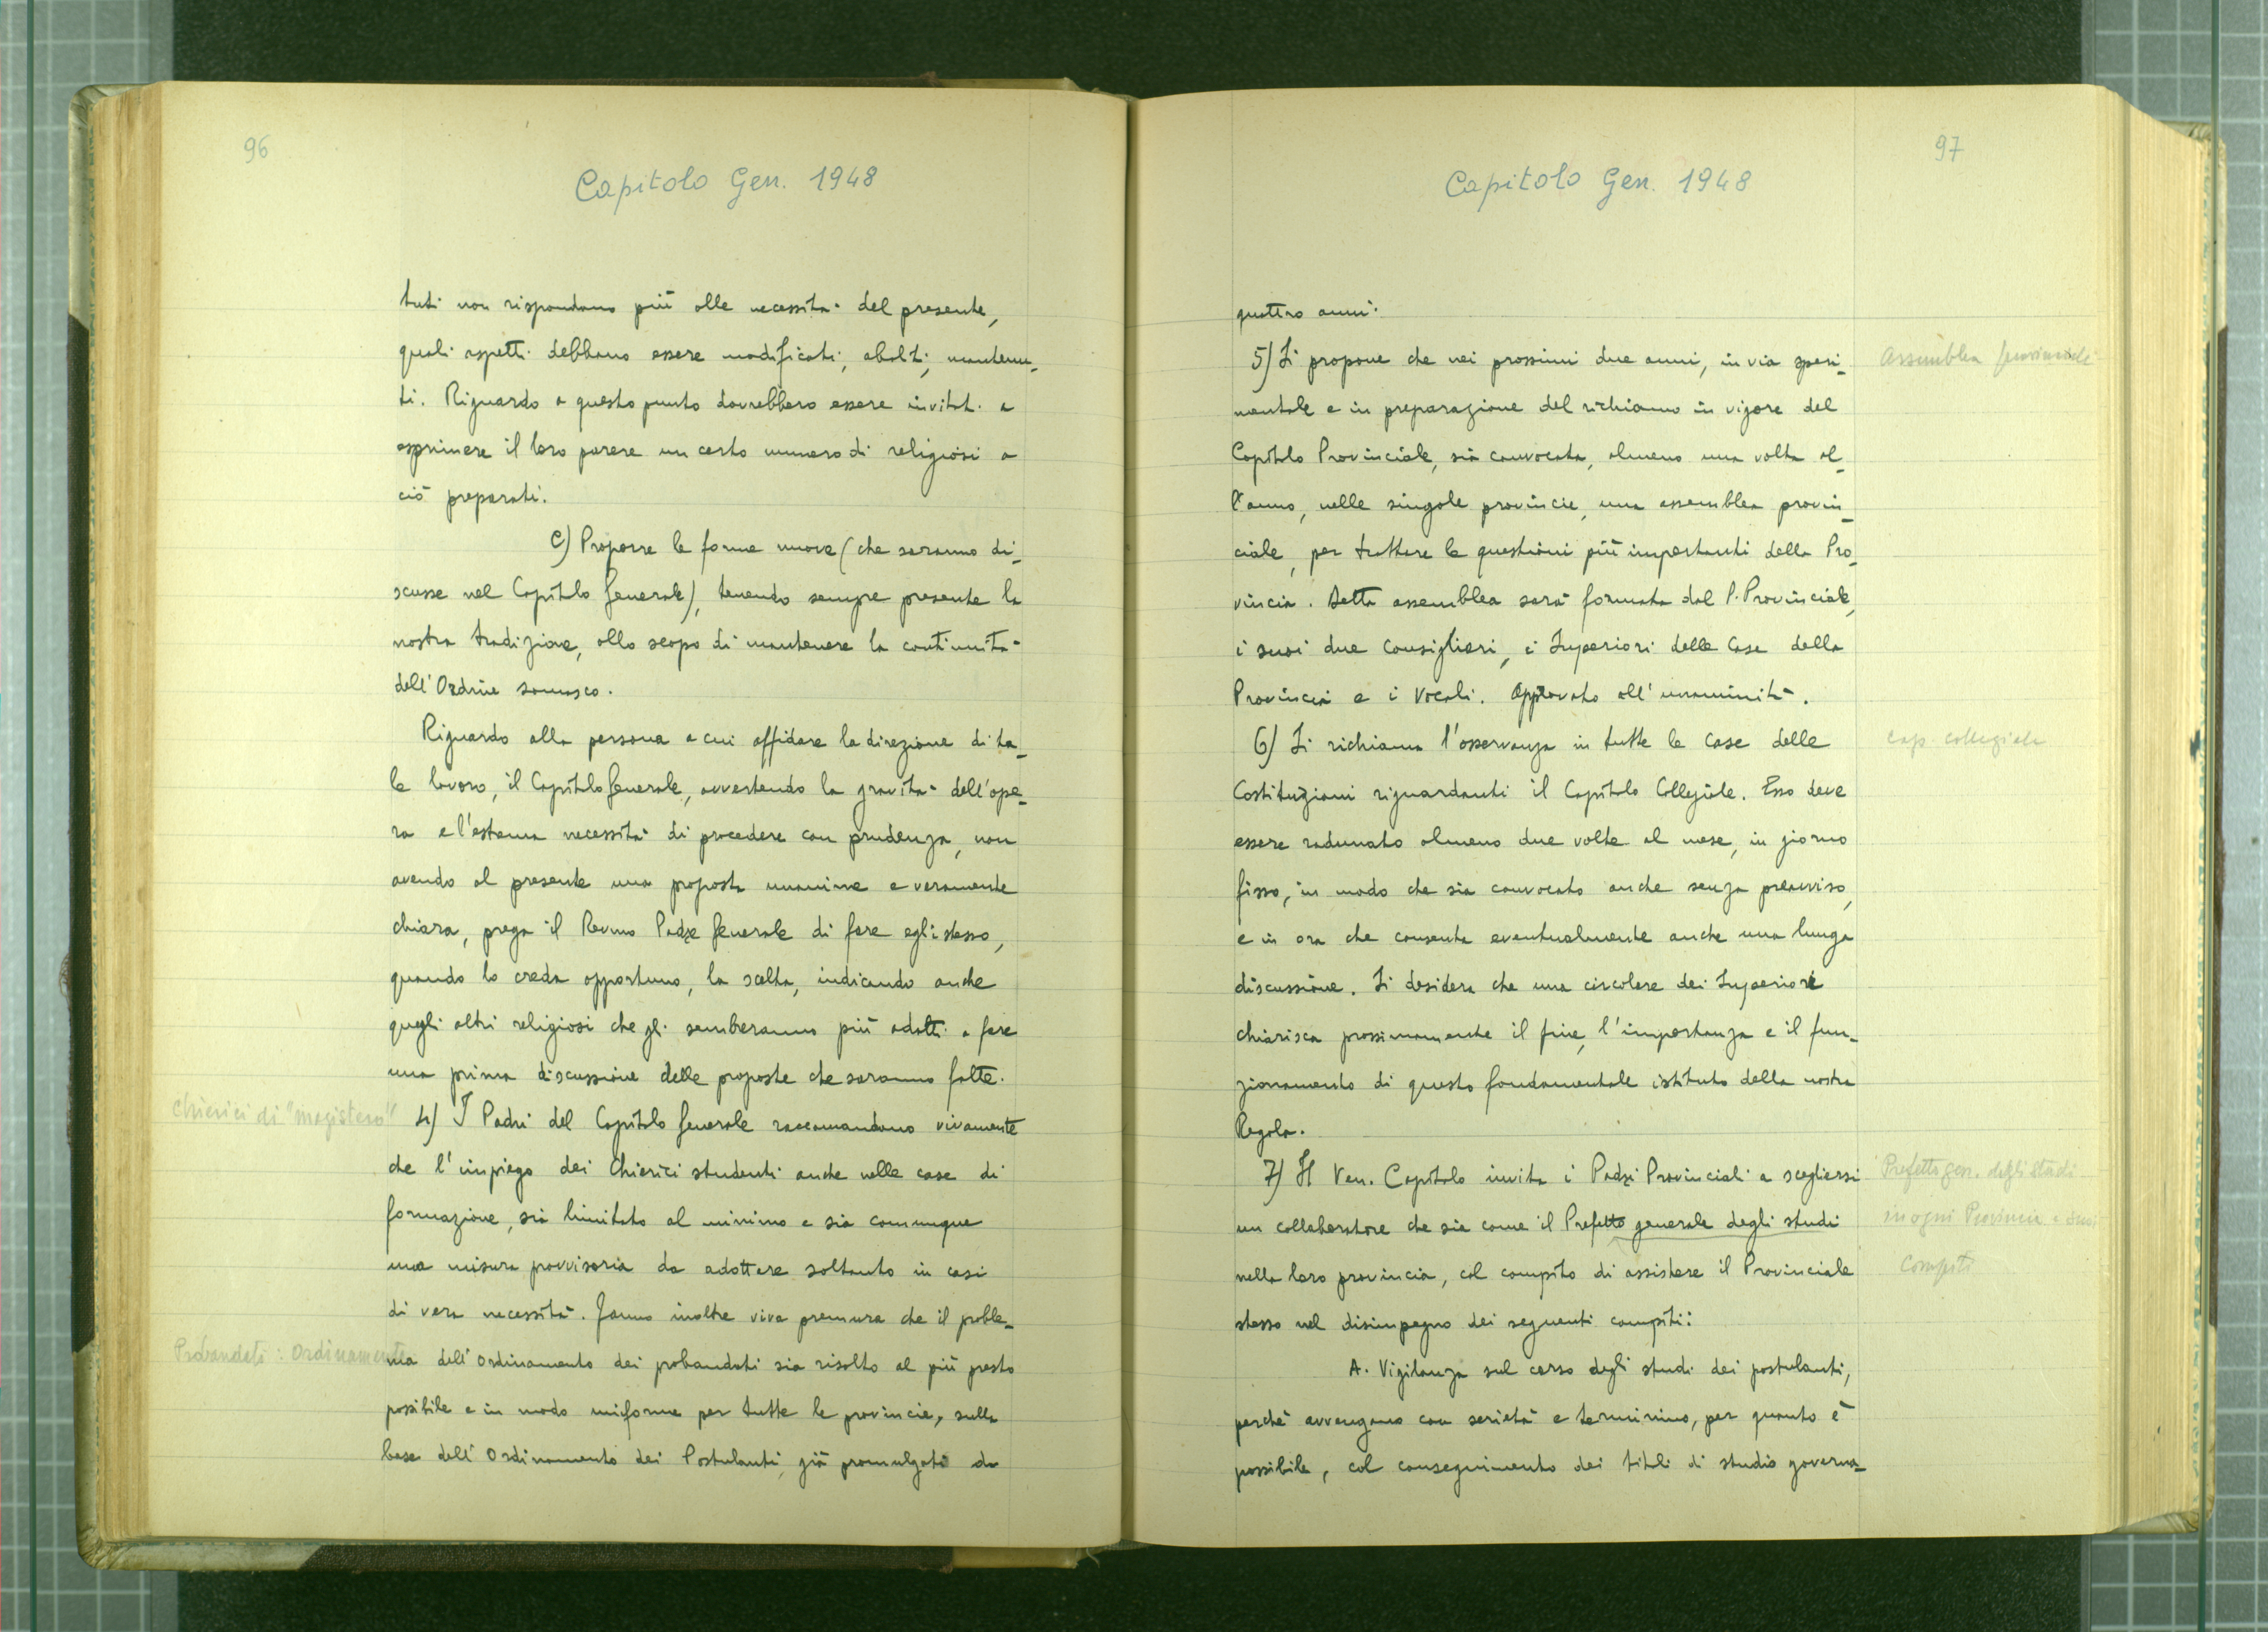 96
Capitolo Gen. 1948
tuti non rispondano più alle necessità del presente,
quali aspetti debbano essere modificati, aboliti, mantenu-
ti. Riguardo a questo punto dovrebbero essere invitati a
esprimere il loro parere un certo numero di religiosi a
ciò preparati.
C) Proporre le forme nuove (che saranno di-
scusse nel Capitolo Generale), tenendo sempre presente la
nostra tradizione, allo scopo di mantenere la continuità
dell'Ordine somasco.
Riguardo alla persona a cui affidare la direzione di ta-
le lavoro, il Capitolo Generale, avvertendo la gravità dell'ope-
ra e l'estema necessità di procedere con prudenza, non
avendo al presente una proposta unanime e veramente
chiara, prega il Rev.mo Padre Generale di fare egli stesso,
quando lo creda opportuno, la scelta, indicando anche
quegli altri religiosi che gli sembreranno più adatti a fare
una prima discussione delle proposte che saranno fatte.
Chierici di "magistero"
4) I Padri del Capitolo Generale raccomandano vivamente
che l'impiego dei Chierici studenti anche nelle case di
formazione, sia limitato al minimo e sia comunque
una misura provvisoria da adottare soltanto in casi
di vera necessità. Fanno inoltre viva premura che il proble-
Probandati: Ordinamento
ma dell'Ordinamento dei probandati sia risolto al più presto
possibile e in modo uniforme per tutte le provincie, sulla
base dell'Ordinamento dei Postulanti, già promulgato da
97
Capitolo Gen. 1948
quattro anni.
5) Si propone che nei prossimi due anni, in via speri-
Assemblea provinciale
mentale e in preparazione del richiamo in vigore del
Capitolo Provinciale, sia convocata, almeno una volta al-
l'anno, nelle singole provincie, una assemblea provin-
ciale, per trattare le questioni più importanti della Pro-
vincia. Detta assemblea sarà formata dal P. Provinciale,
i suoi due Consiglieri, i Superiori delle Case della
Provincia e i Vocali. Approvato all'unanimità.
6) Si richiama l'osservanza in tutte le Case delle
Cap. collegiale
Costituzioni riguardanti il Capitolo Collegiale. Esso deve
essere radunato almeno due volte al mese, in giorno
fisso, in modo che sia convocato anche senza preavviso,
e in ora che consenta eventualmente anche una lunga
discussione. Si desidera che una circolare dei Superiori
chiarisca prossimamente il fine, l'importanza e il fun-
zionamento di questo fondamentale istituto della nostra
Regola.
7) Il Ven. Capitolo invita i Padri Provinciali a scegliersi
Prefetto gen. degli studi
un collaboratore che sia come il Prefetto generale degli studi
in ogni Provincia e suoi
nella loro provincia, col compito di assistere il Provinciale
Compiti
stesso nel disimpegno dei seguenti compiti:
A. Vigilanza sul corso degli studi dei postulanti,
perché avvengano con serietà e terminino, per quanto è
possibile, col conseguimento dei titoli di studio governa-